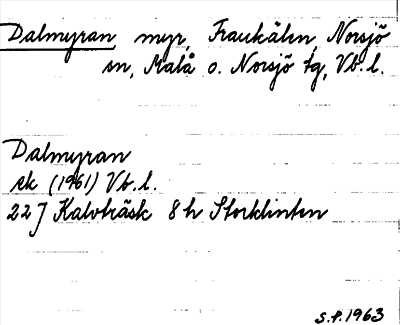 Dalmyran, myr, Fraukälen, Norsjö
sn, Malå o. Norsjö tg, Vb. l.
Dalmyran
sk (1961) Vb. l.
22J Kalvträsk 8h Storklinten
S.P. 1963